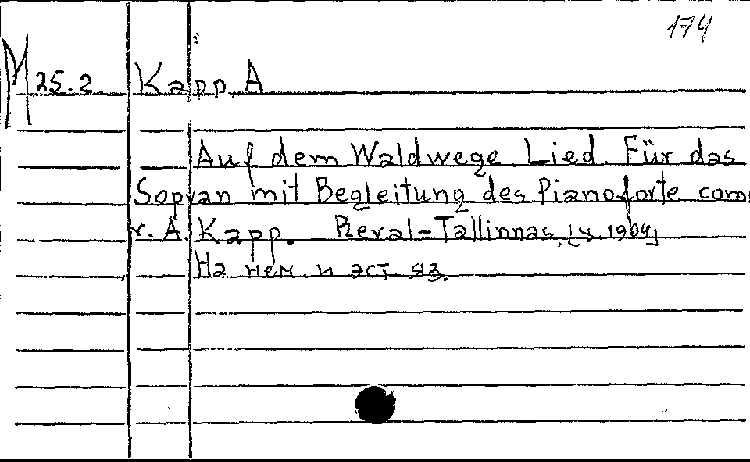 174
M 25.2 Kapp, A
Auf dem Waldwege. Lied. Für das
Sopran mit Begleitung des Pianoforte com
v. A. Kapp. Reval-Tallinnas, 1904]
На нем. и эст. яз.